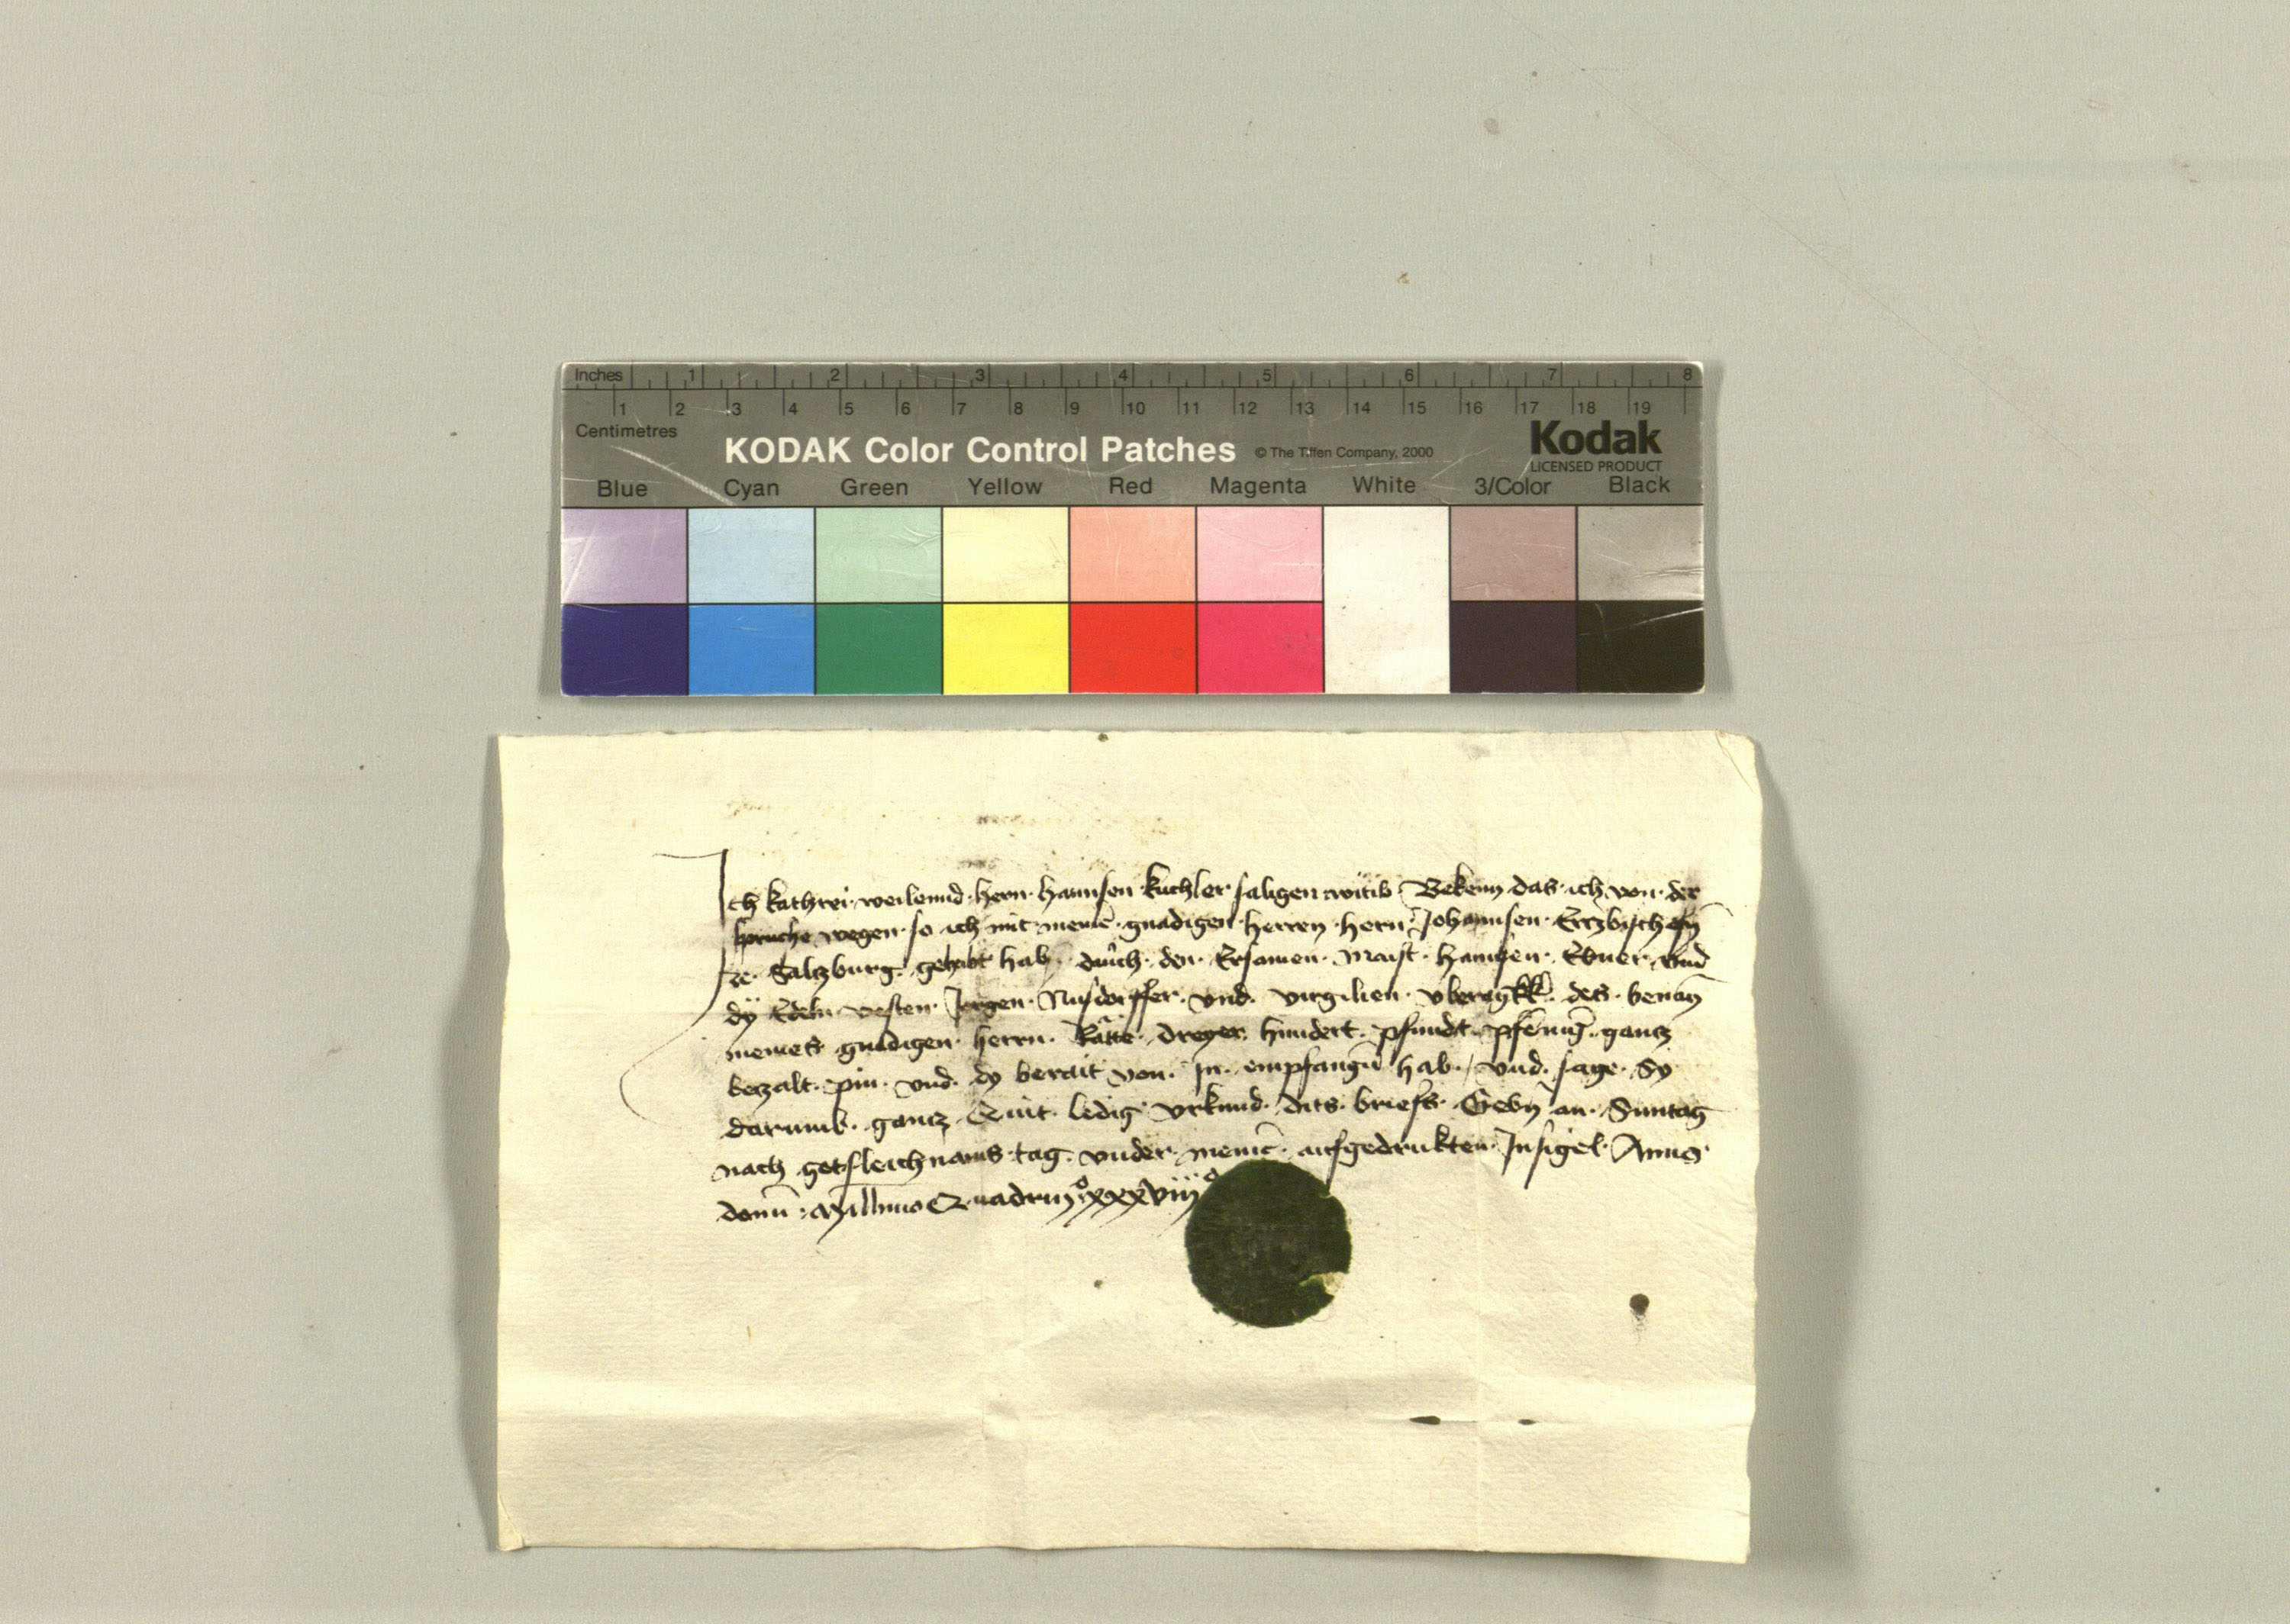 Inches 1 2 3 4 5 6 7 8
1 2 3 4 5 6 7 8 9 10 11 12 13 14 15 16 17 18 19
Centimetres
KODAK Color Control Patches © The Tiffen Company, 2000 Kodak
LICENSED PRODUCT
Blue Cyan Green Yellow Red Magenta White 3/Color Black
Ich kathrei weilennd hern hannsen kuchler saligen witib Bekenn das ich von der
spruche wegen so ich mit meinē gnadigen herren hern Johannsen Ertzbischofn̄
ze Saltzburg gehabt hab durch den Ersamen Maist hannsen Ebner vnd
dÿ Edeln vesten Jorgen Nusdorffer vnd virgilien vberagkℏ des benan̄
meines gnedigen herrn Rätte dreyer hundert pfundt pfēnig gantz
betzalt pin vnd dy berait von In empfangn̄ hab / vnd sage Sy
darumb gantz Quit ledig vrkund dits briefs Gebn̄ an Suntag
nach gotsleichnams tag vnder meinē aufgedrukten Insigel Anno
domī Millīmo Quadrin⁰ xxxviij⁰